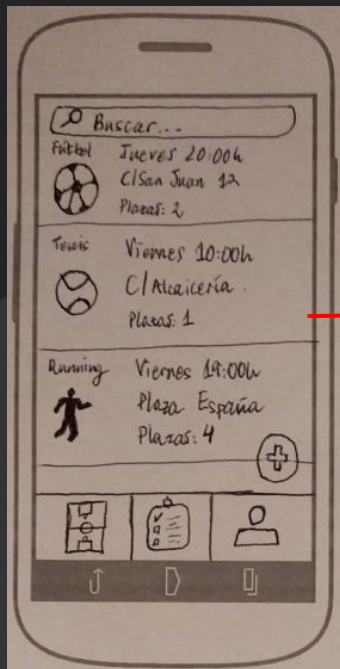 Buscar...
Fútbol
Jueves 20:00h
C/San Juan 12
Plazas: 2
Tenis
Viernes 10:00h
C/Alcaicería.
Plazas: 1
Running
Viernes 19:00h
Plaza España
Plazas: 4